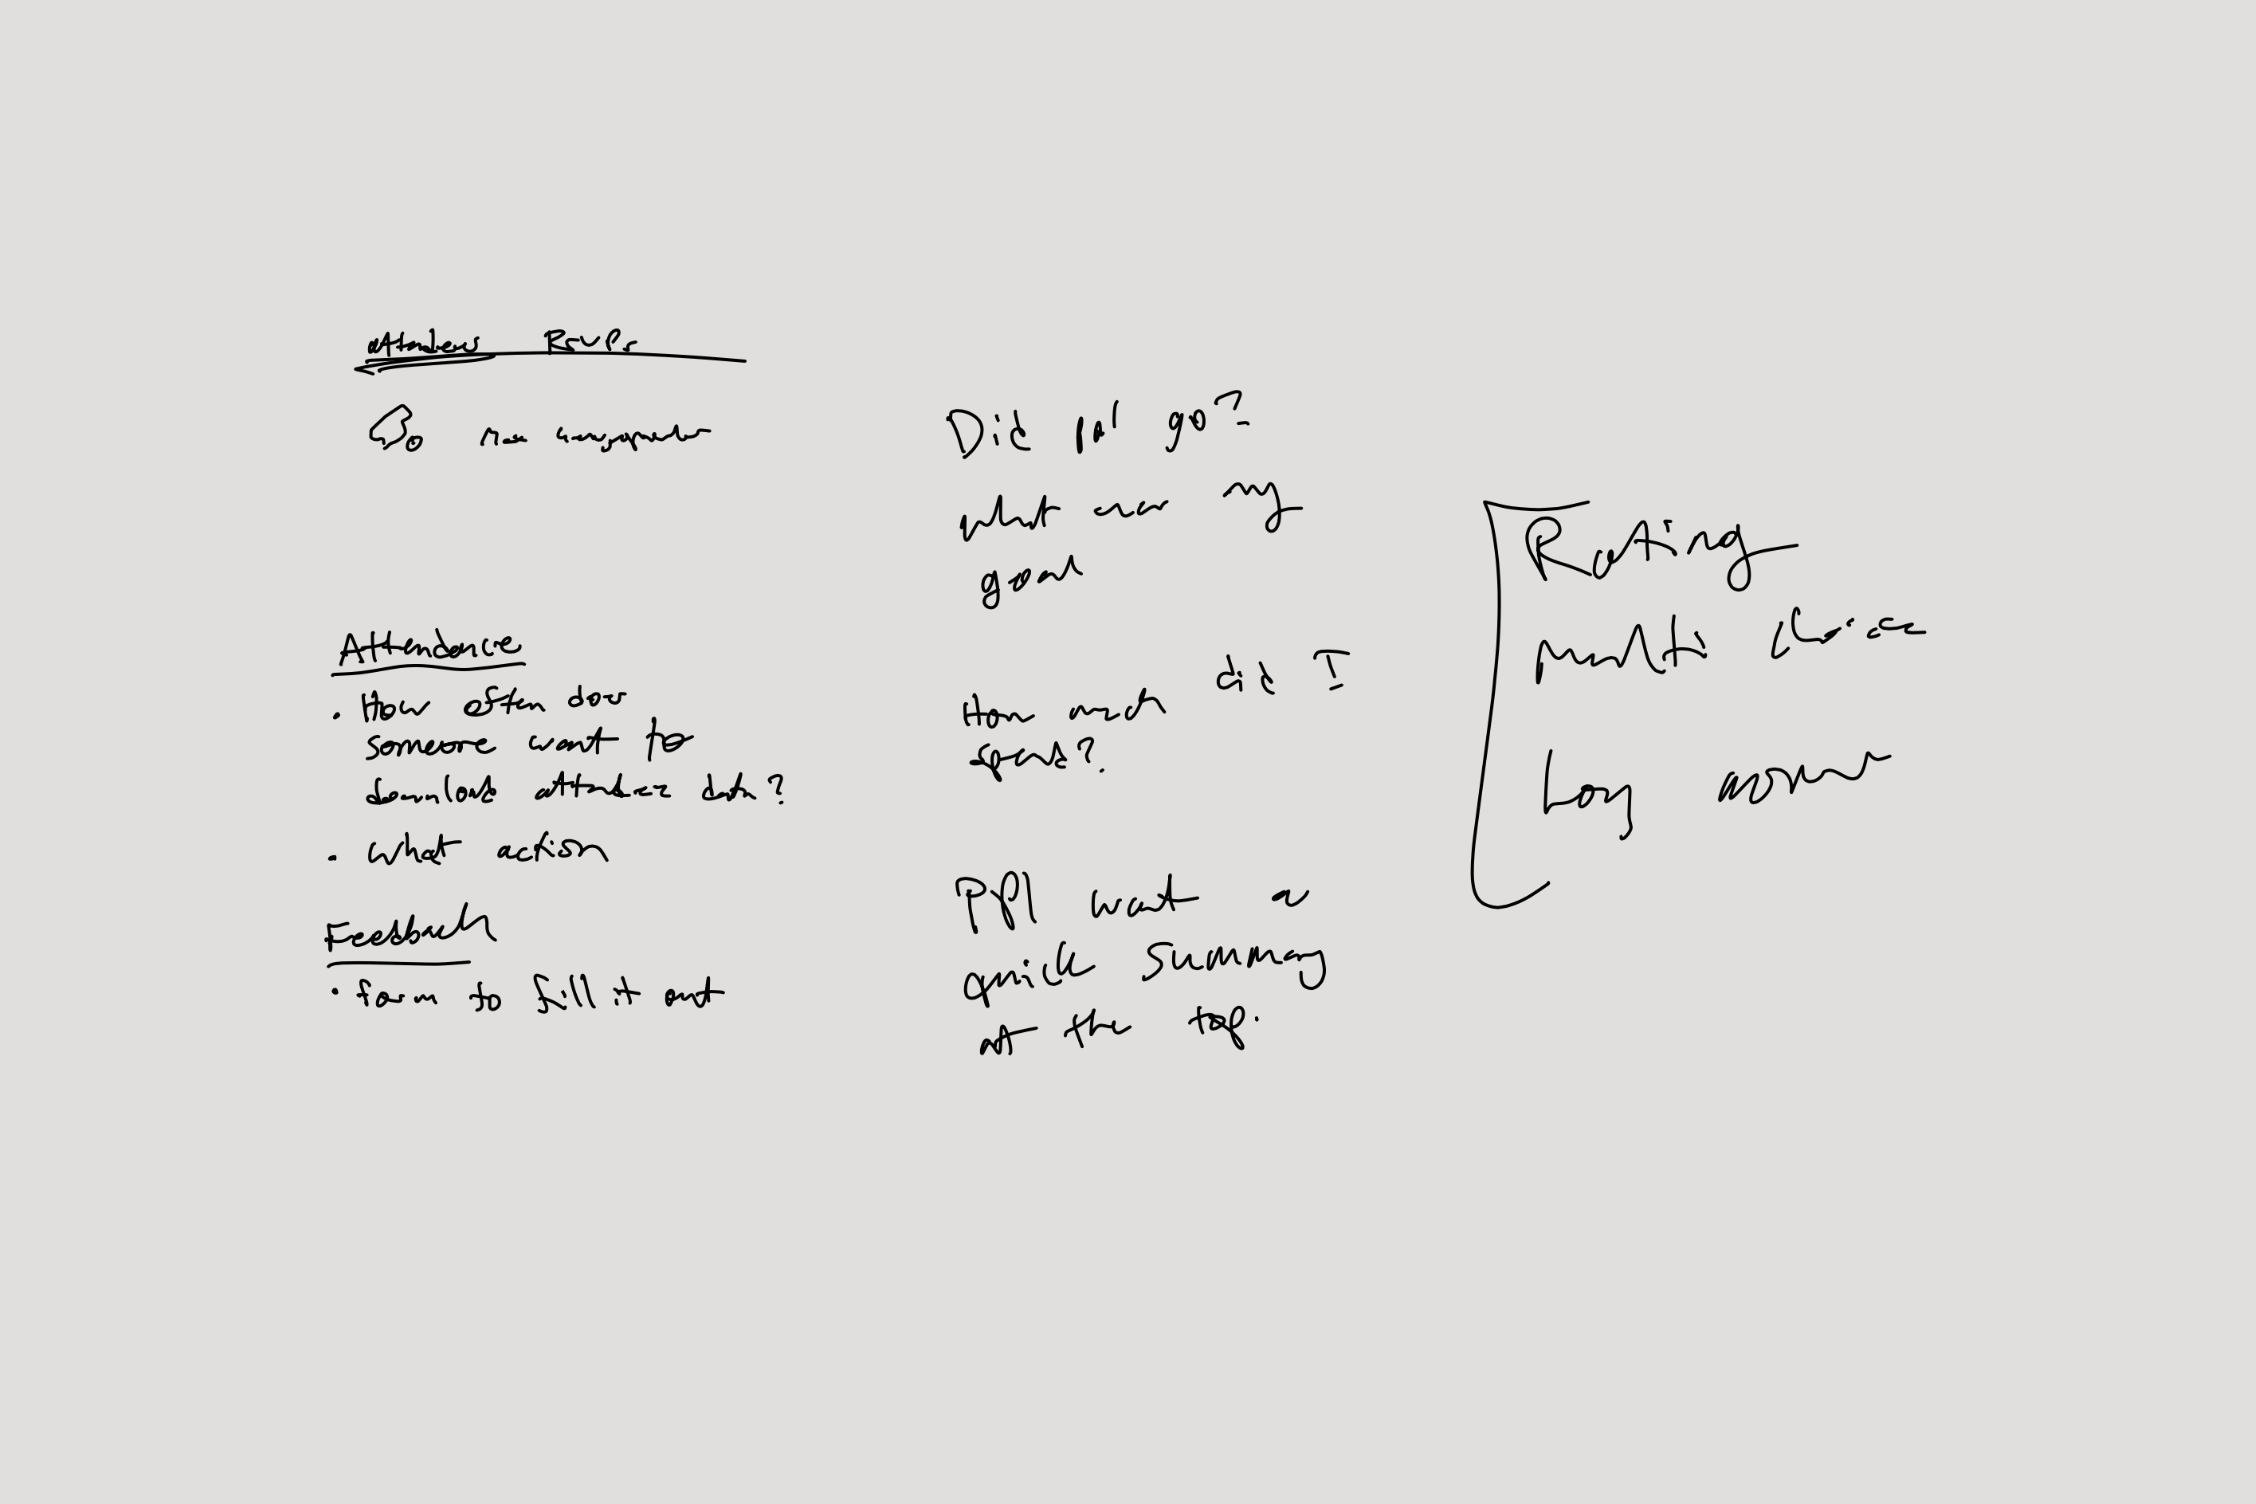 attendees RSVPs
Attendance
• How often does
someone want to
download attendee data?
• what action
Feedback
• form to fill it out
Did ppl go?
what was my
goal
How much did I
spend?
PPl want a
quick summary
at the top.
Rating
multi choice
Long